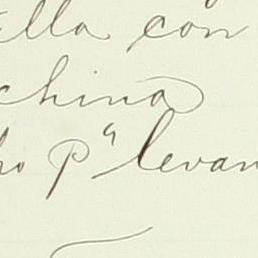 ella con
china
ho pª levan